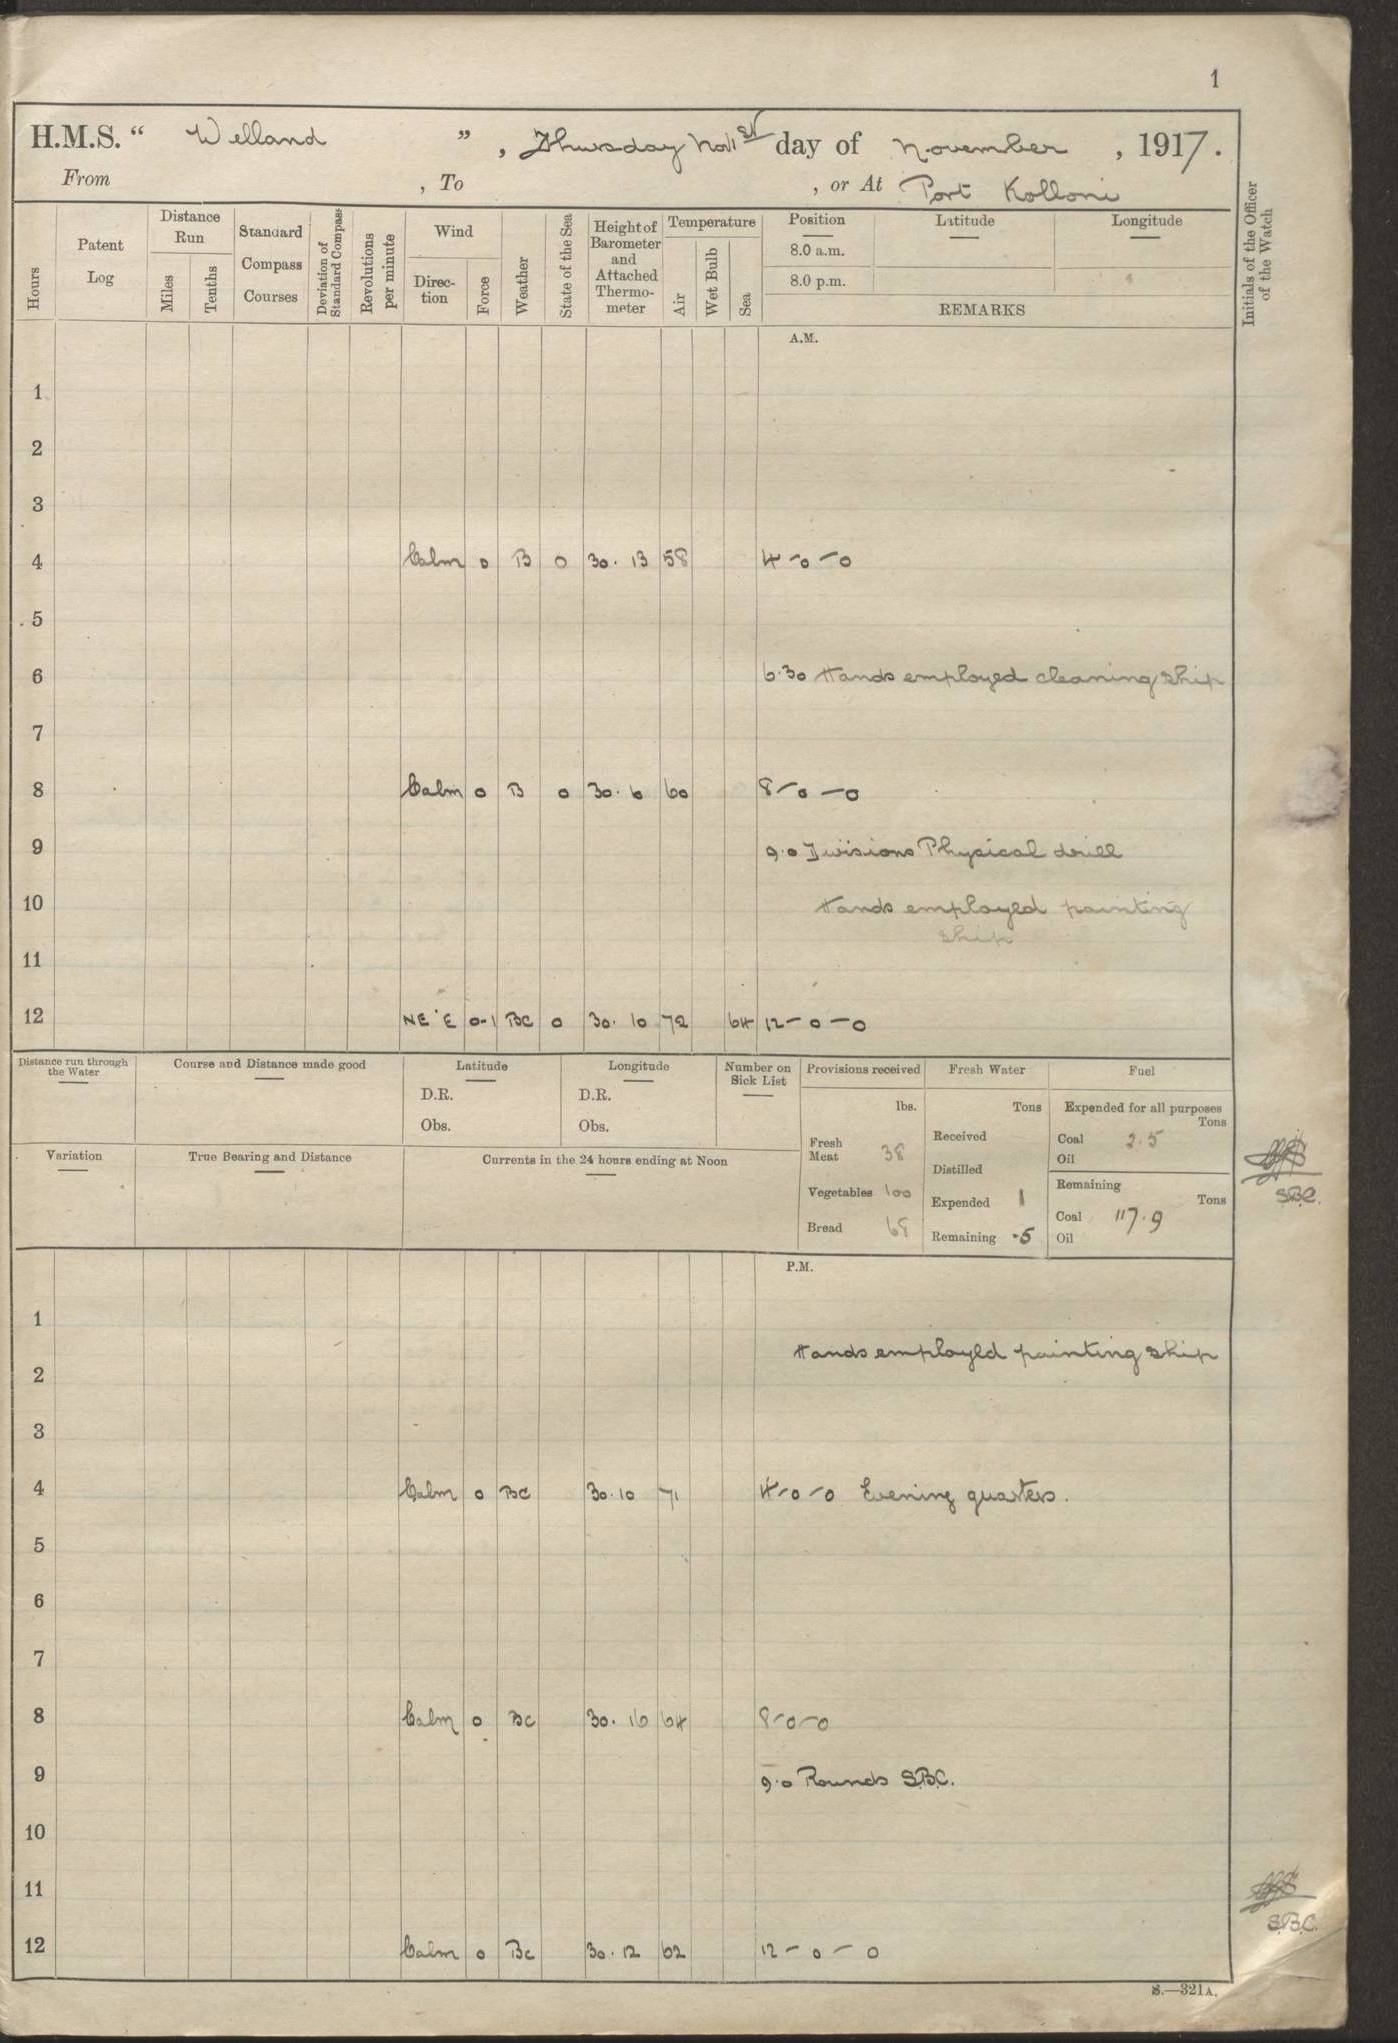 1
H.M.S. “ Welland ”, Thursday Nov 1st day of November, 1917.
From , To , or At Port Kolloni
Hours
Patent Log
Distance Run
Miles
Tenths
Standard Compass Courses
Deviation of Standard Compass
Revolutions per minute
Wind
Direction
Force
Weather
State of the Sea
Height of Barometer and Attached Thermometer
Temperature
Air
Wet Bulb
Sea
Position
8.0 a.m.
8.0 p.m.
Latitude
Longitude
REMARKS
Initials of the Officer of the Watch
A.M.
1
2
3
4 Calm 0 B 0 30. 13 58 4-0-0
5
6 6.30 Hands employed cleaning ship
7
8 Calm 0 B 0 30. 6 60 8-0-0
9 9.0 Divisions Physical drill
10 Hands employed painting
ship
11
12 NE'E 0-1 BC 0 30. 10 72 64 12-0-0
Distance run through the Water
Course and Distance made good
Latitude
D.R.
Obs.
Longitude
D.R.
Obs.
Number on Sick List
Provisions received
lbs.
Fresh Meat 38
Vegetables 100
Bread 68
Fresh Water
Tons
Received
Distilled
Expended 1
Remaining .5
Fuel
Expended for all purposes
Tons
Coal 2.5
Oil
Remaining
Tons
Coal 117.9
Oil
Variation
True Bearing and Distance
Currents in the 24 hours ending at Noon
S.B.C.
P.M.
1
Hands employed painting ship
2
3
4 Calm 0 BC 30.10 71 4-0-0 Evening quarters.
5
6
7
8 Calm 0 BC 30. 10 64 8-0-0
9 9.0 Rounds S.B.C.
10
11
S.B.C.
12 Calm 0 Bc 30.12 62 12-0-0
S.—321A.